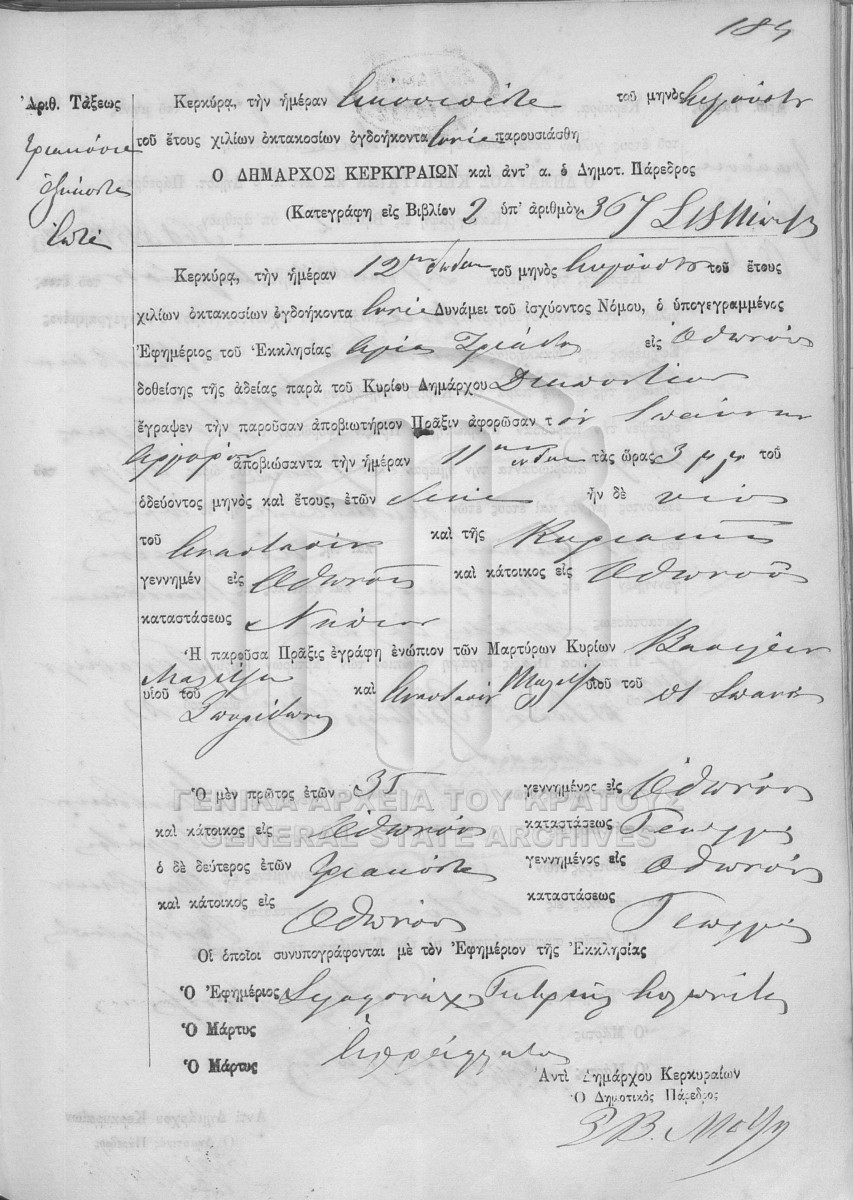 185
Ἀριθ. Τάξεως
τριακόσια
ἑξήκοντα
ἑπτά
Κερκύρᾳ, τὴν ἡμέραν εἰκοσιπέντε τοῦ μηνὸς Αὐγούστου
τοῦ ἔτους χιλίων ὀκτακοσίων ὀγδοήκοντα ἐννέα παρουσιάσθη
Ὁ ΔΗΜΑΡΧΟΣ ΚΕΡΚΥΡΑΙΩΝ καὶ ἀντ' α. ὁ Δημοτ. Πάρεδρος
(Κατεγράφη εἰς Βιβλίον 2 ὑπ' ἀριθμὸν 367
Κερκύρᾳ, τὴν ἡμέραν 12 τοῦ μηνὸς Αὐγούστου τοῦ ἔτους
χιλίων ὀκτακοσίων ὀγδοήκοντα ἐννέα Δυνάμει τοῦ ἰσχύοντος Νόμου, ὁ ὑπογεγραμμένος
Ἐφημέριος τοῦ Ἐκκλησίας Ἁγία Τριάδος εἰς Ὀθωνούς
δοθείσης τῆς ἀδείας παρὰ τοῦ Κυρίου Δημάρχου Διαποντίων
ἔγραψεν τὴν παροῦσαν ἀποβιωτήριον Πρᾶξιν ἀφορῶσαν τ ὸν
ἀποβιώσαντα τὴν ἡμέραν 11 τὰς ὥρας 3 μ μ τοῦ
ὁδεύοντος μηνὸς καὶ ἔτους, ἐτῶν ἦν δὲ υἱὸς
τοῦ Ἀναστασίου καὶ τῆς Κυριακῆς
γεννημέν εἰς Ὀθωνούς καὶ κάτοικος εἰς Ὀθωνούς
καταστάσεως Νήπιον
Ἡ παροῦσα Πρᾶξις ἐγράφη ἐνώπιον τῶν Μαρτύρων Κυρίων Βασιλείου
υἱοῦ τοῦ Σπυρίδωνος καὶ Ἀναστασίου υἱοῦ τοῦ
Ὁ μὲν πρῶτος ἐτῶν 35 γεννημένος εἰς Ὀθωνούς
καὶ κάτοικος εἰς Ὀθωνούς καταστάσεως Γεωργός
ὁ δὲ δεύτερος ἐτῶν τριάκοντα γεννημένος εἰς Ὀθωνούς
καὶ κάτοικος εἰς Ὀθωνούς καταστάσεως Γεωργός
ΓΕΝΙΚΑ ΑΡΧΕΙΑ ΤΟΥ ΚΡΑΤΟΥΣ
GENERAL STATE ARCHIVES
Οἱ ὁποῖοι συνυπογράφονται μὲ τὸν Ἐφημέριον τῆς Ἐκκλησίας
Ὁ Ἐφημέριος
Ὁ Μάρτυς
Ὁ Μάρτυς ἀγράμματοι
Ἀντὶ Δημάρχου Κερκυραίων
Ὁ Δημοτικὸς Πάρεδρος